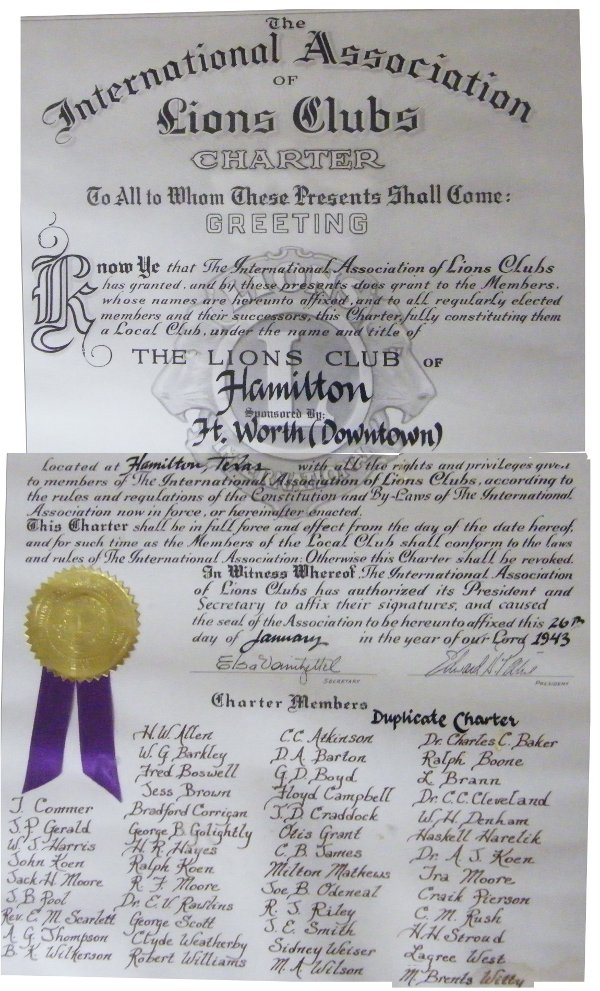 The
International Association
OF
Lions Clubs
CHARTER
To All to Whom These Presents Shall Come:
GREETING
Know Ye that The International Association of Lions Clubs
has granted, and by these presents does grant to the Members,
whose names are hereunto affixed, and to all regularly elected
members and their successors, this Charter, fully constituting them
a Local Club, under the name and title of
THE LIONS CLUB OF
Hamilton
Sponsored By:
Ft. Worth (Downtown)
Located at Hamilton, Texas with all the rights and privileges given
to members of The International Association of Lions Clubs, according to
the rules and regulations of the Constitution and By-Laws of The International
Association now in force, or hereinafter enacted.
This Charter shall be in full force and effect from the day of the date hereof,
and for such time as the Members of the Local Club shall conform to the laws
and rules of The International Association: Otherwise this Charter shall be revoked.
In Witness Whereof The International Association
of Lions Clubs has authorized its President and
Secretary to affix their signatures, and caused
the seal of the Association to be hereunto affixed this 26th
day of January in the year of our Lord 1943
SECRETARY
PRESIDENT
Charter Members
Duplicate Charter
T Commer
J. P. Gerald
W. J. Harris
John Koen
Jack H Moore
J. B Pool
Rev. E. M. Scarlett
A. G. Thompson
B. K. Wilkerson
H. W. Allen
W. G. Barkley
Fred Boswell
Jess Brown
Bradford Corrigan
George B. Golightly
H. R. Hayes
Ralph Koen
R. F. Moore
Dr. E. V. Rawlins
George Scott
Clyde Weatherby
Robert Williams
C.C. Atkinson
D. A. Barton
G. D. Boyd
Floyd Campbell
J. D. Craddock
Otis Grant
C. B. James
Milton Mathews
Joe B. Odeneal
R. J. Riley
J. E. Smith
Sidney Weiser
M. A. Wilson
Dr. Charles C. Baker
Ralph Boone
L. Brann
Dr. C. C. Cleveland
W. H. Denham
Haskell Harelik
Dr. A. J. Koen
Ira Moore
Craik Pierson
C. M. Rush
H. H. Stroud
Lagree West
M. Brents Witty